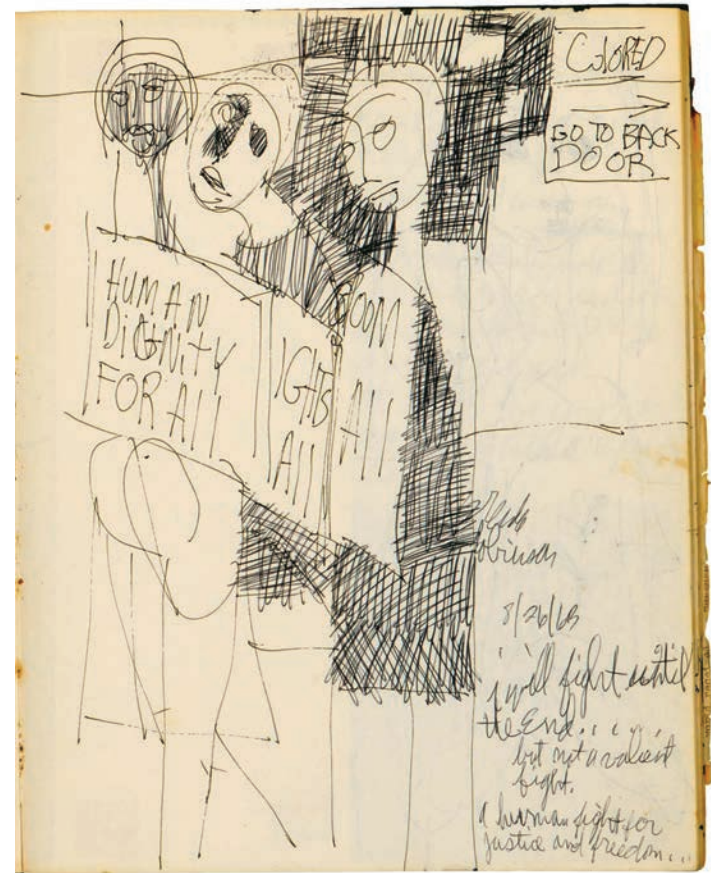 COLORED
GO TO BACK
DOOR
HUMAN
DIGNITY
FOR All
IGHTS
All
OOM
All
8/26/63
i will fight until
the End.....
but not a valient
fight.
a human fight for
justice and freedom...